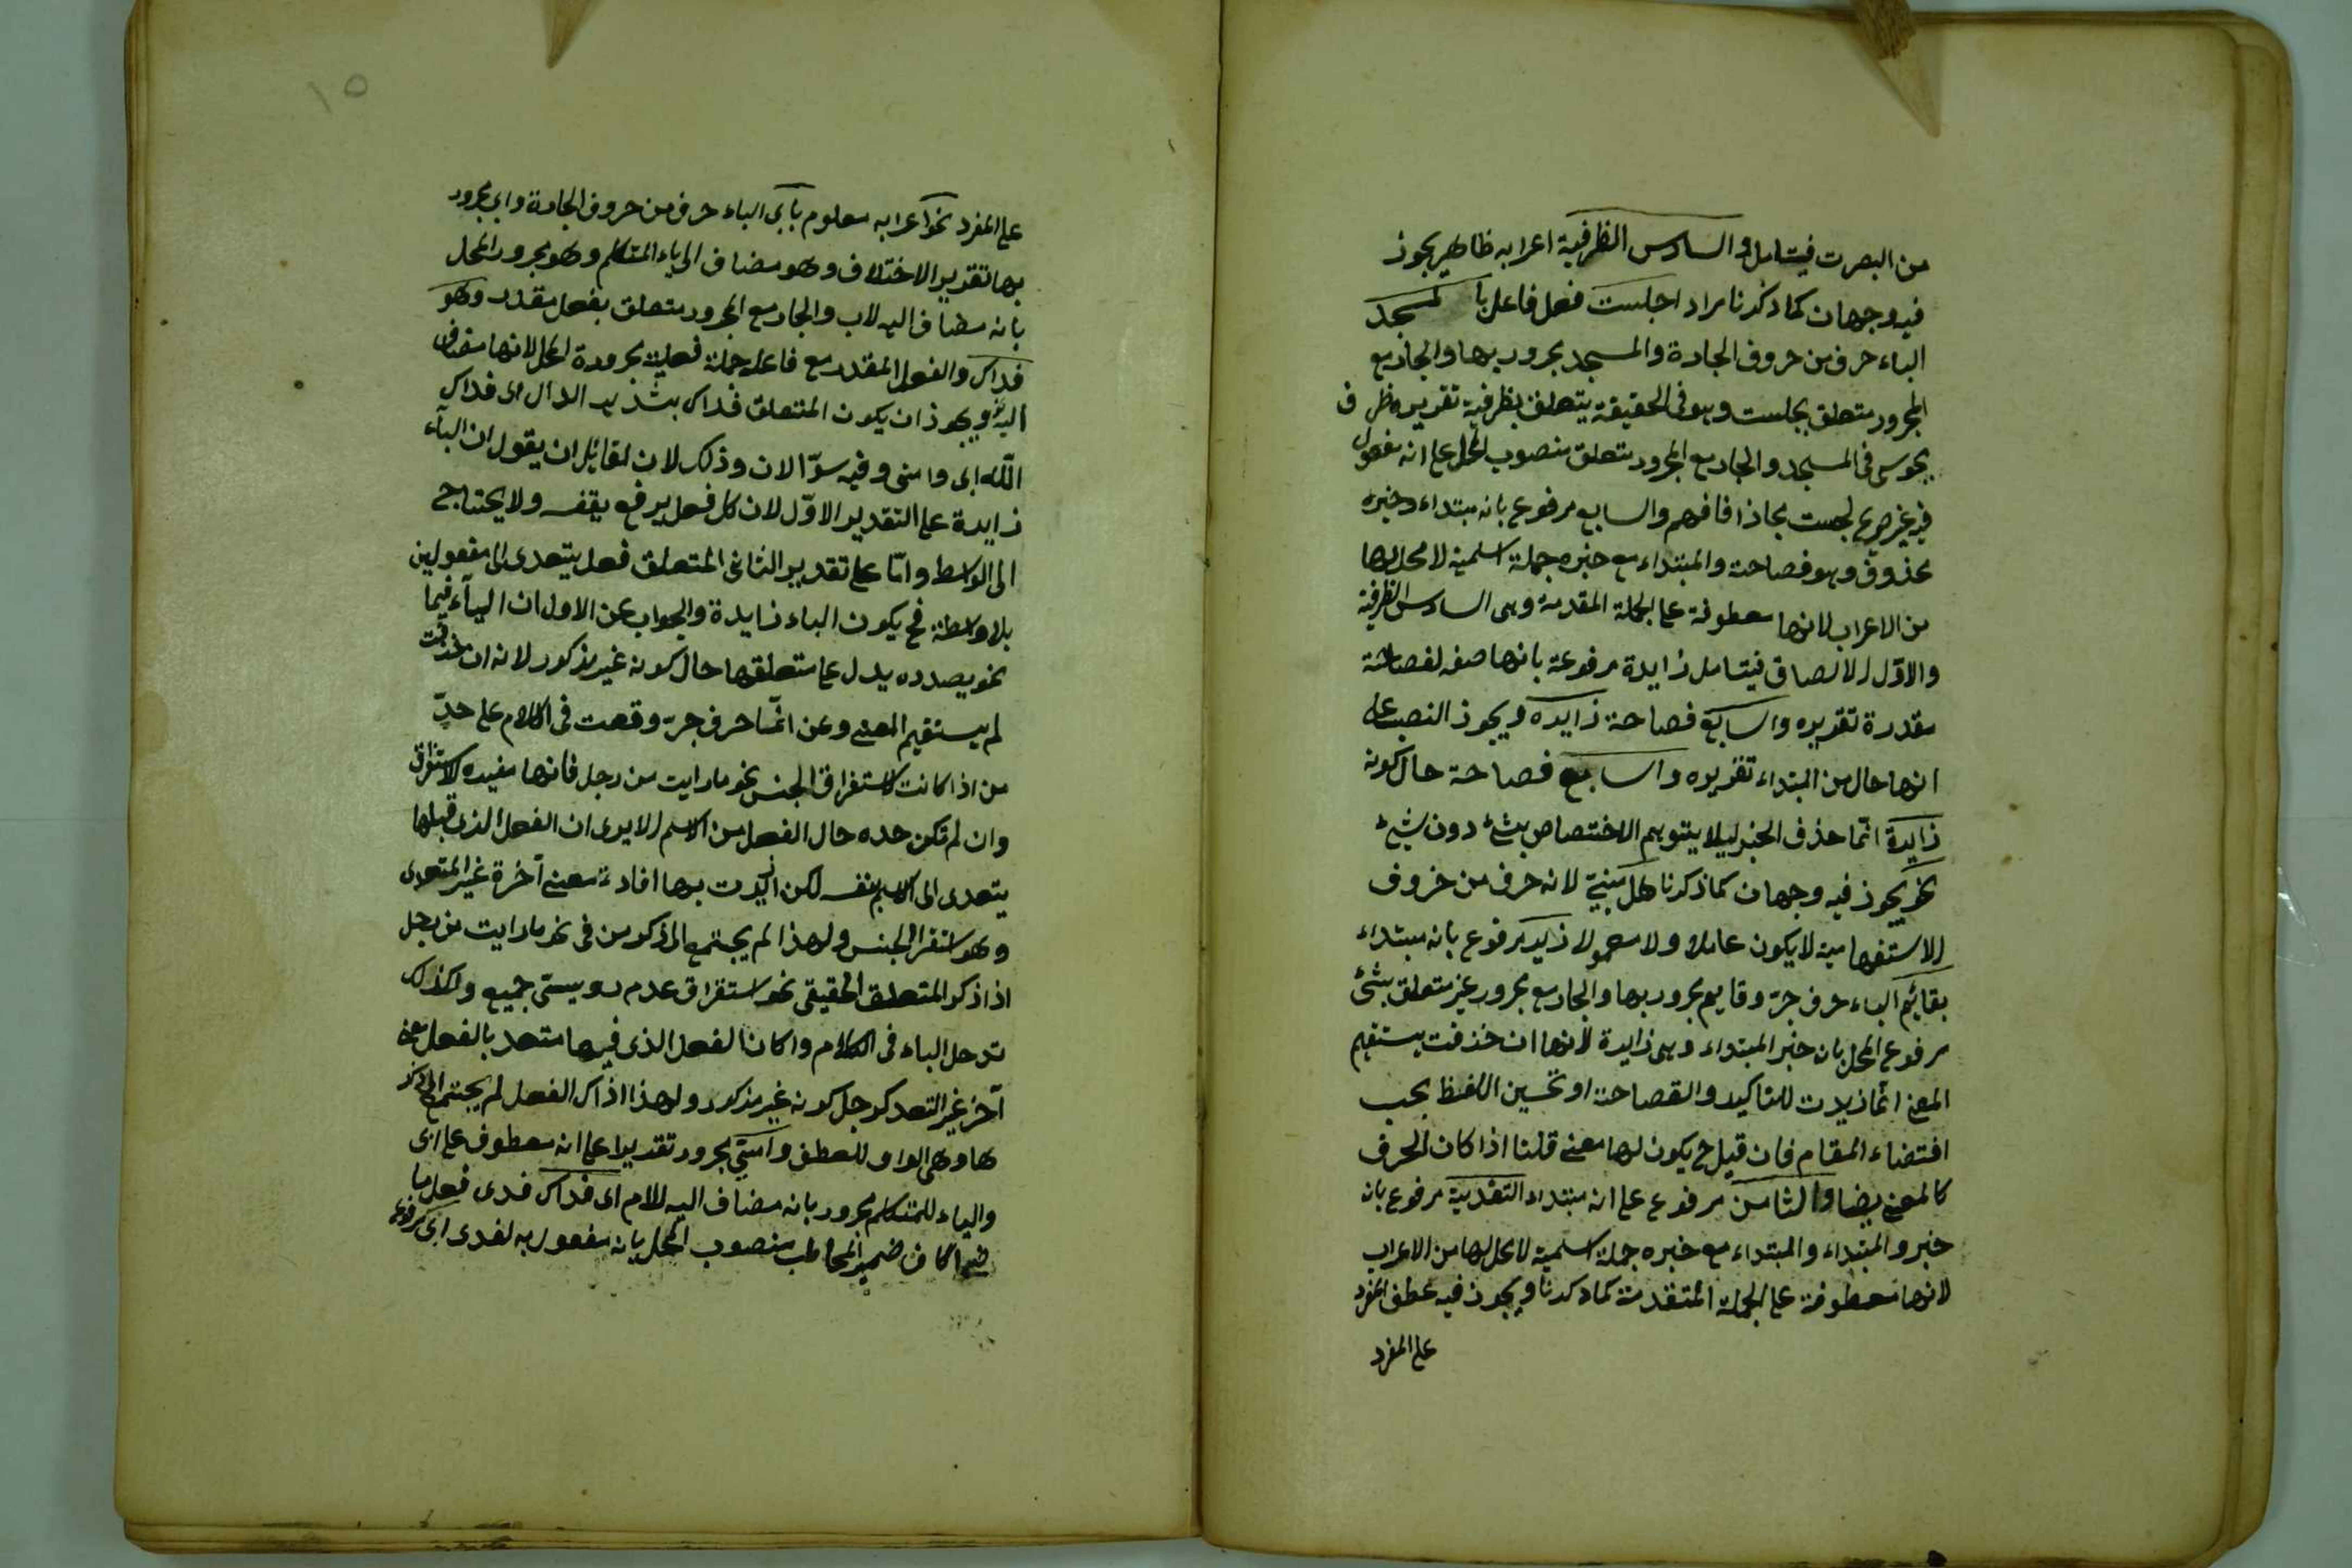 من البصرت فيتامل و السادس الظرفية اعرابه ظاهر يجوز
فيه وجهان كما ذكرنا مرارا جلست فعل فاعل بالمسجد
الباء حرف من حروف الجارة والمسجد مجرور بها والجار مع
المجرور متعلق بجلست وهو في الحقيقة يتعلق بظرفية تقديره ظرف
في المسجد والجار مع المجرور متعلق منصوب المحل على انه مفعول
فيه غير صريح لجلست مجازا فافهم والسابع مرفوع بانه مبتداء وخبره
محذوف وهو فصاحة والمبتداء مع خبره جملة اسمية لا محل لها
من الاعراب لانها معطوفة على الجملة المقدمة وهى السادس الظرفية
والاول للالصاق فيتامل زايدة مرفوعة بانها صفة لفصاحة
مقدرة تقديره والسابع فصاحة زايدة ويجوز النصب على
انها حال من المبتداء تقديره والسابع فصاحة حال كونه
زايدة انما حذف الخبر ليلا يتوهم الاختصاص بشئ دون شئ
نحو يجوز فيه وجهان كما ذكرنا هل مبنية لانه حرف من خروف
الاستفهامية لا يكون عاملا ولا معمولا زيد مرفوع بانه مبتداء
بقايم الباء حرف جر وقايم مجرور بها والجار مع مجرور غير متعلق بشئ
مرفوع المحل بان خبر المبتداء وهى زايدة لانها ان خذفت يستقيم
المعنى انما زيدت للتاكيد والفصاحة او تحسين اللفظ بحب
اقتضاء المقام فان قيل يكون لها معنى قلنا اذا كان الحرف
كالمعنى ايضا والثامن مرفوع على انه مبتداء التفدية مرفوع بان
خبر والمبتداء والمبتداء مع خبره جملة اسمية لا محل لها من الاعراب
لانها معطوفة على الجملة المتقدمة كما ذكرنا ويجوز فيه عطف المفرد
على المفرد
١٥
على المفرد نحو اعرابه معلوم بابى الباء حرف من حروف الجارة وابى مجرور
بها تقدير الاختلاف وهو مضاف الى ياء المتكلم وهو مجرور المحل
بانه مضاف اليه لاب والجار مع المجرور متعلق بفعل مقدر وهو
فداك والفعل المقدر مع فاعله جملة فعلية مجرورة المحل لانها مضاف
اليه ويجوز ان يكون المتعلق فداك بتشديد الدال اى فداك
الله ابى وامى وفيه سؤالان وذلك لان لقائل ان يقول ان الباء
زايدة على التقدير الاول لان كل فعل يرفع بنفسه ولا يحتاج
الى الواسط واما على تقدير الثانى المتعلق فعل يتعدى الى مفعولين
بلا واسطة فح يكون الباء زايدة والجواب عن الاول ان الباء فيما
نحو بصدده يدل على متعلقها حال كونه غير مذكور لانه ان خذفت
لم يستقيم المعنى وعن انما حرف جر وقعت فى الكلام على حد
من اذا كانت لاستغراق الجنس نحو ما رايت من رجل فانها مفيده للاستغراق
وان لم تكن حده حال الفعل من الاسم الا يرى ان الفعل الذى قبلها
يتعدى الى الاسم بنفسه لكن ازيدت بها افادة معنى آخرة غير المتعدى
وهو استغراق الجنس ولهذا لم يجتمع المذكور من فى نحو ما رايت من رجل
اذا ذكر المتعلق الحقيقى نحو استغراق عدم جميع وكذلك
تدخل الباء فى الكلام وا كان الفعل الذى فيها متعد بالفعل معنى
آخر غير التعد كرجل كونه غير مذكور ولهذا اذاك الفعل لم يجتمع المذكر
ها وهى الواو للعطف وامى مجرور تقديرا على انه معطوف على ابى
والياء للمتكلم مجرور بانه مضاف اليه للام اى فداك فدى فعل ما
ضى الكاف ضمير المخاطب منصوب المحل بانه مفعول به لفدى ابى مرفوع